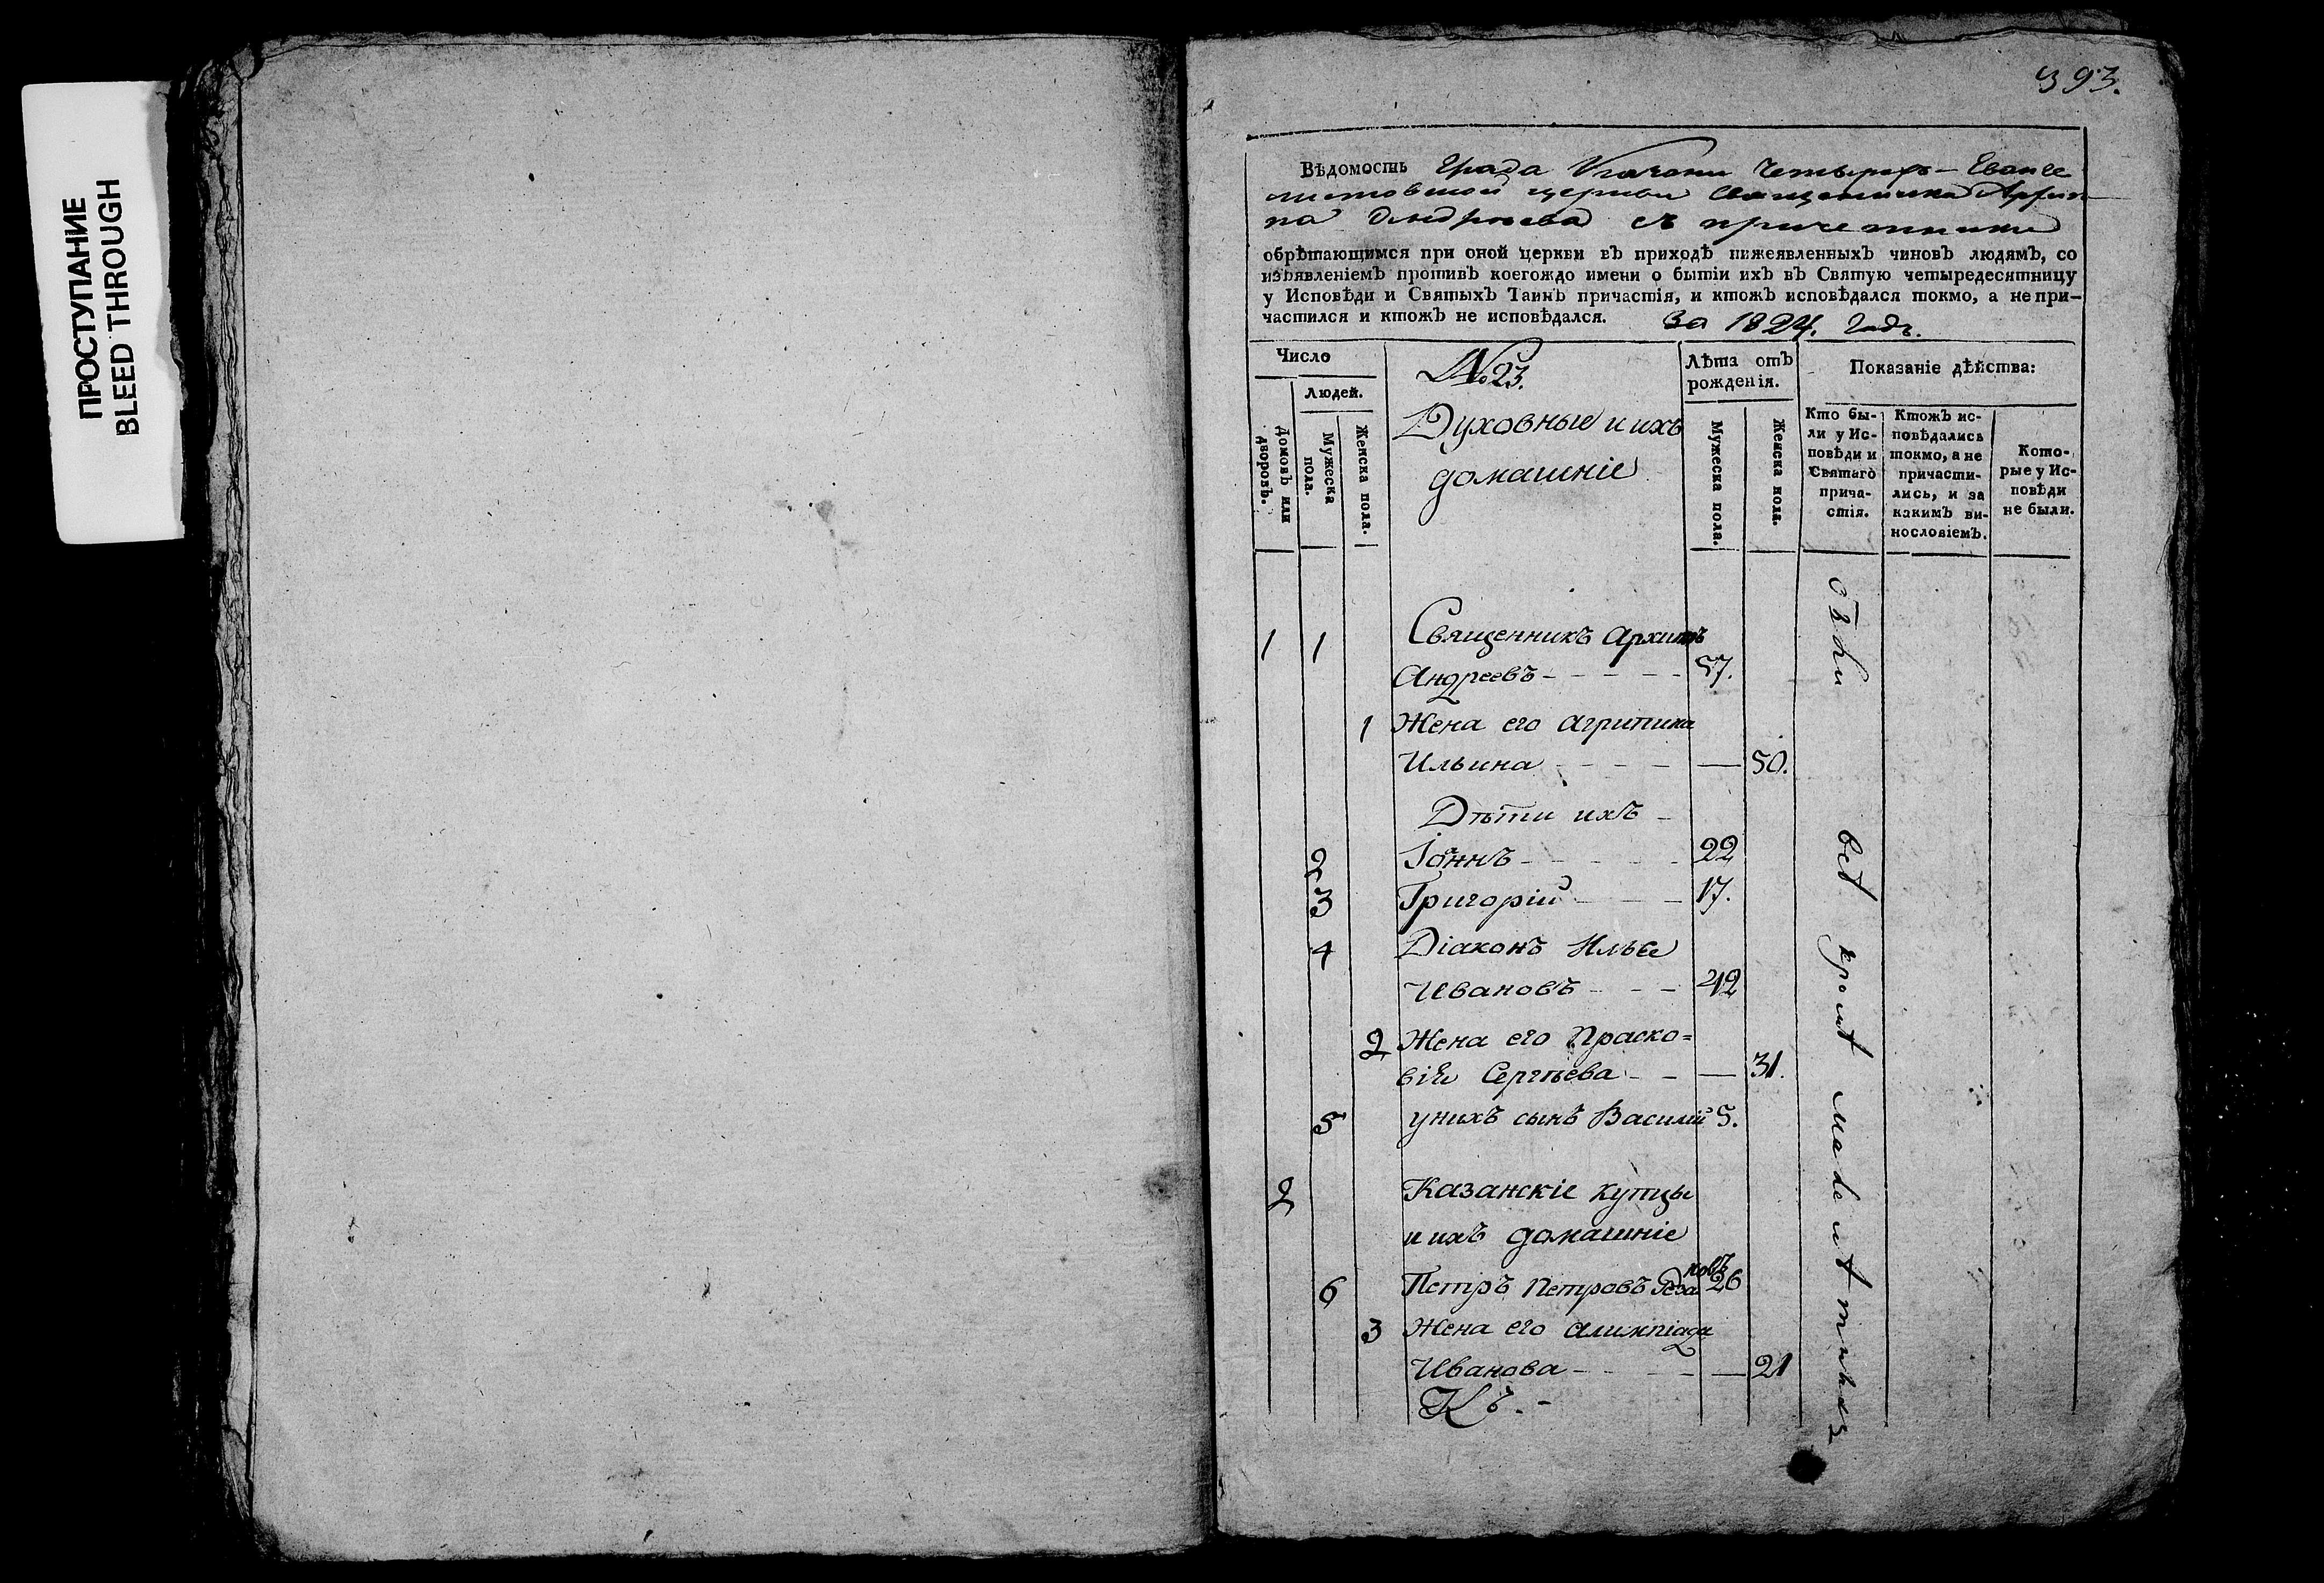 ПРОСТУПАНИЕ
BLEED THROUGH
393.
Вѣдомость Града Казани Четырехъ-Еванге
листовской церкви Священника Архип
па Андреева съ причетники
обрѣтающимся при оной церкви въ приходѣ нижеявленныхъ чиновъ людямъ, со
изъявленіемъ противъ коегождо имени о бытіи ихъ въ Святую четыредесятницу
у Исповѣди и Святыхъ Таинъ причастія, и ктожъ исповѣдался токмо, а не при-
частился и ктожъ не исповѣдался. За 1824. Годъ.
Число
Людей.
Домовъ или
дворовъ.
Мужеска
пола.
Женска пола.
№ 23.
Духовные и ихъ
домашніе
Лѣта отъ
рожденія.
Мужеска пола.
Женска пола.
Показаніе дѣйства:
Кто бы-
ли у Ис-
повѣди и
Святаго
прича-
стія.
Ктожъ ис-
повѣдались
токмо, а не
причасти-
лись, и за
какимъ ви-
нословіемъ.
Кото-
рые у Ис-
повѣди
не были.
1 1 Священникъ Архипъ
Андреевъ - - - - - 57.
1 Жена его Агрипина
Ильина - - - - — 50.
Дѣти ихъ -
2 Іоннъ - - - - - 22
3 Григорій - - - 17.
4 Діаконъ Илья
Ивановъ - - - 42
2 Жена его Праско=
вія Сергѣева - - — 31.
5 у нихъ сынъ Василій 5.
2 Казанскіе купцы
и ихъ домашніе
6 Петръ Петровъ 26
3 Жена его Алимпіада
Иванова - - - - — 21
Къ. -
были
всѣ
кромѣ